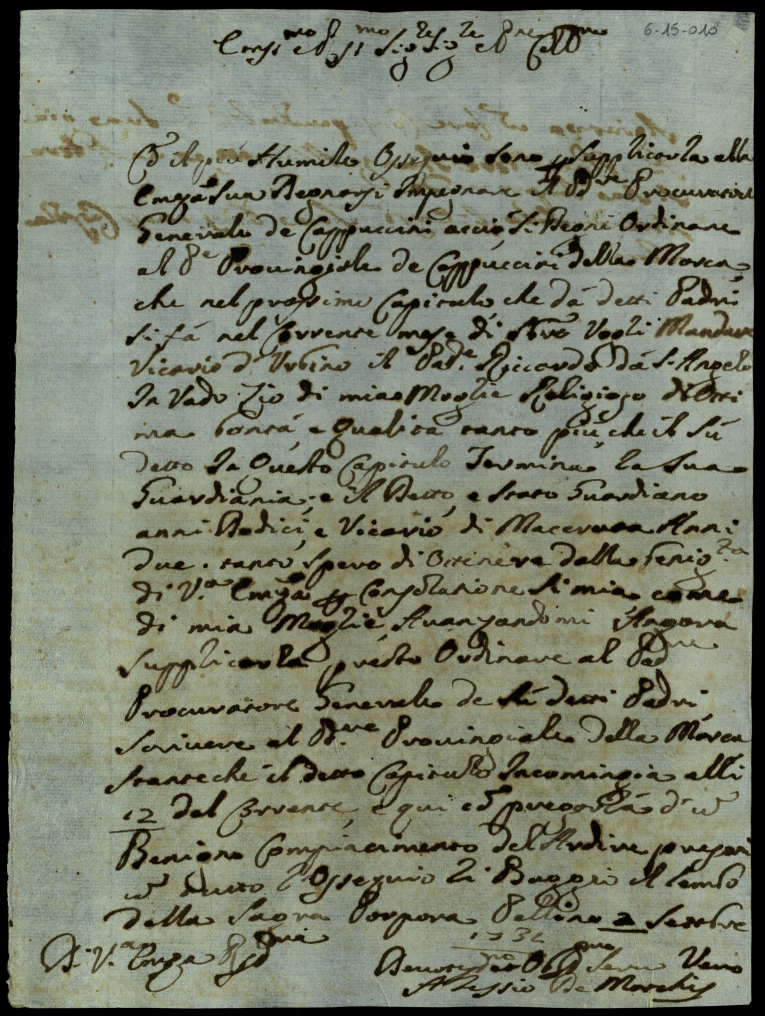 6-15-010
Emin.mo e R.mo Sig.re Sig.re e P.ne Col.mo
Cõ il più Humile Ossequio sono p supplicarla alla
Emza Sua Degnarsi Impegnare il Pd.re Procuratore
Generale de Cappuccini acciò si Degni Ordinare
al P.e Provinciale de Cappuccini della Marca
che nel prossimo Capitulo che da detti Padri
si fà nel Corrente mese di 7bre Vogli Mandare
Vicario d'Urbino il Pad.e Riccardo da S. Angelo
In Vado Zio di mia Moglie Religioso di Otti
ma bontà, e Qualità tanto più che il Sú
detto In Questo Capitulo Termina la Sua
Guardiania, e il Detto, e Stato Guardiano
anni Dodici, e Vicario di Macerata Anni
due. tanto spero di Ottenere dalla
di V.a Emza p Consolatione si mia come
di mia Moglie Avanzandomi Ancora
supplicarla presto Ordinare al Pad.re
Procuratore Generale de sú detti Padri
scrivere al Pd.re Provinciale della Marca
stante che il detto Capitulo Incomincia alli
12 del Corrente, e qui
Benigno Compiacimento del Ardire
tutto l'Ossequio Li Baggio il Lembo
della Sagra Porpora Pellino 2 Settbre
1732
D. V.a Emza R.ma
Devot. et Obb. Serv. Vero
Alessio De Marchis